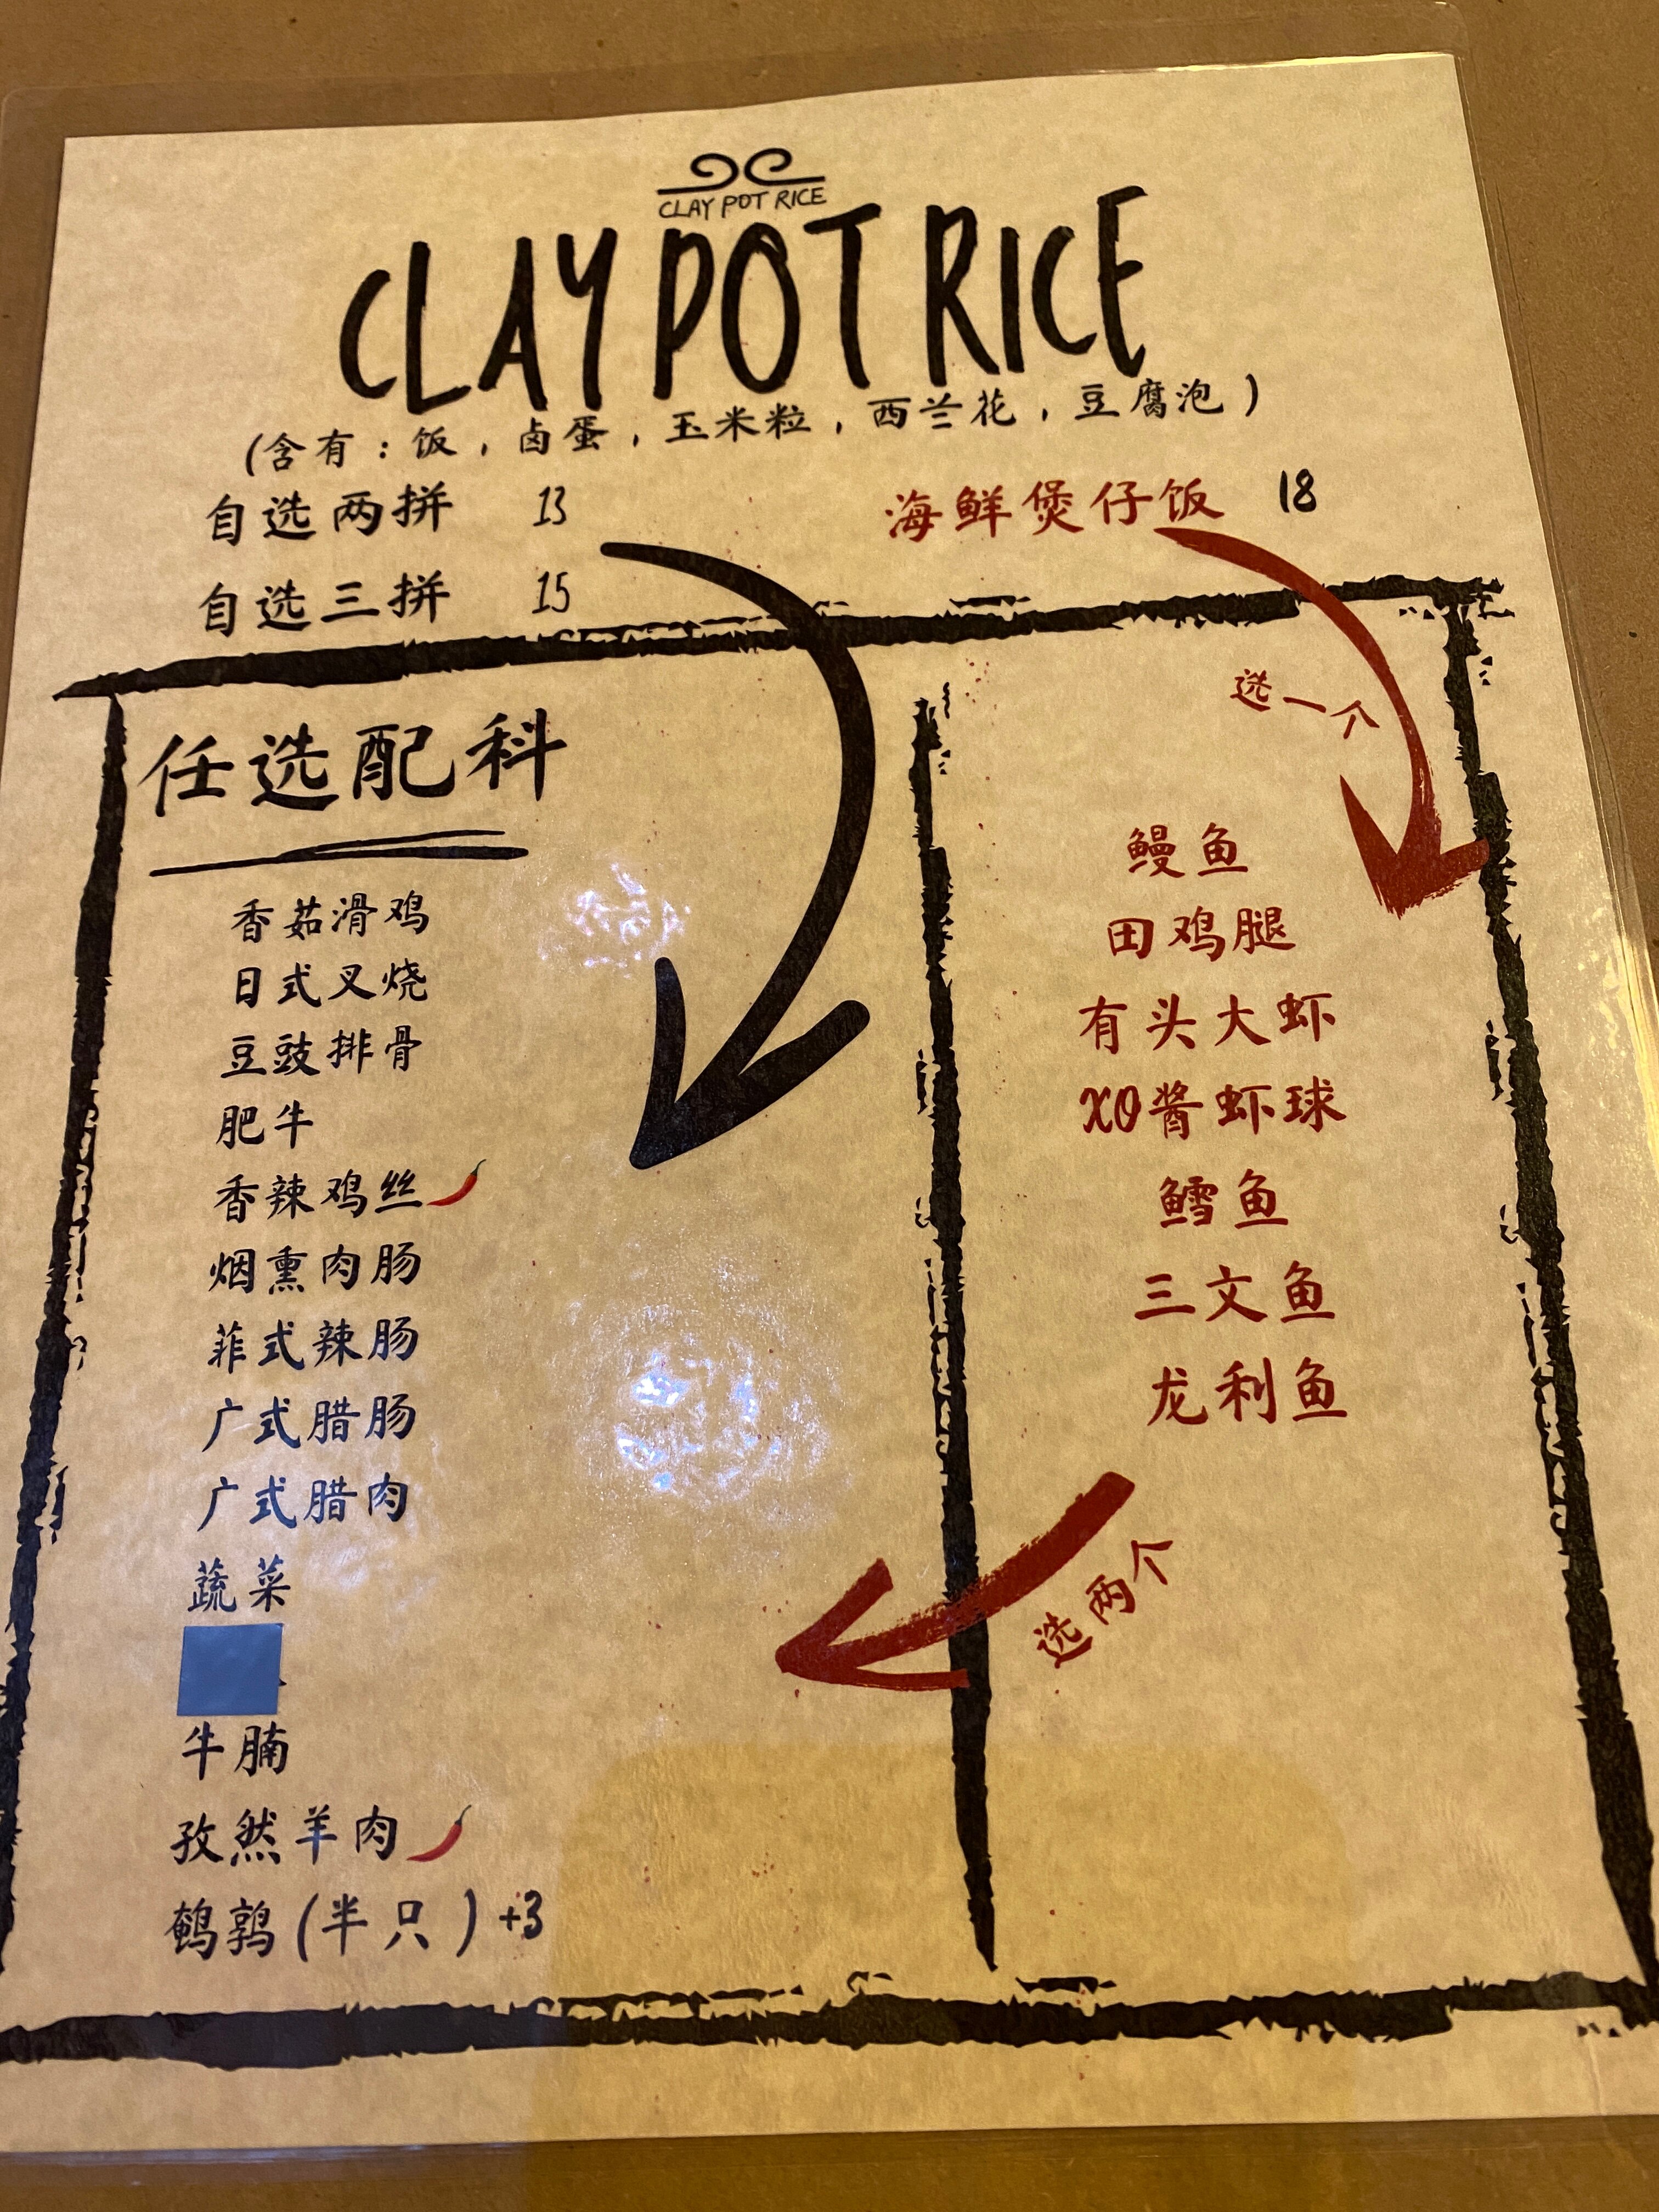 CLAY POT RICE
CLAY POT RICE
(含有：饭，卤蛋，玉米粒，西兰花，豆腐泡)
自选两拼 13
自选三拼 15
海鲜煲仔饭 18
任选配科
香茹滑鸡
日式叉烧
豆豉排骨
肥牛
香辣鸡丝
烟熏肉肠
菲式辣肠
广式腊肠
广式腊肉
蔬菜
牛腩
孜然羊肉
鹌鹑(半只) +3
选一个
鳗鱼
田鸡腿
有头大虾
XO酱虾球
鳕鱼
三文鱼
龙利鱼
选两个